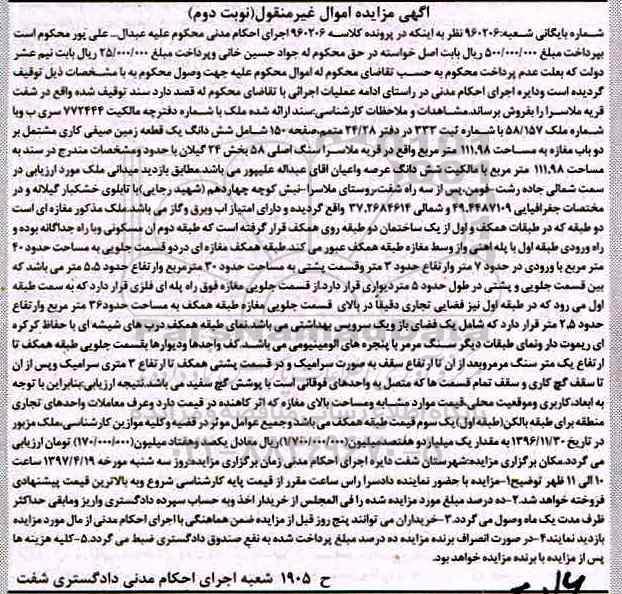 آگهی مزایده اموال غیرمنقول(نوبت دوم)
شماره بایگانی شعبه:۹۶۰۲۰۶ نظر به اینکه در پرونده کلاسه ۹۶۰۲۰۶ اجرای احکام مدنی محکوم علیه عبدال... علی پور محکوم است
بپرداخت مبلغ ۵۰۰/۰۰۰/۰۰۰ ریال بابت اصل خواسته در حق محکوم له جواد حسین خانی وپرداخت مبلغ ۲۵/۰۰۰/۰۰۰ ریال بابت نیم عشر
دولت که بعلت عدم پرداخت محکوم به حسب تقاضای محکوم له اموال محکوم علیه جهت وصول محکوم به با مشخصات ذیل توقیف
گردیده است ودایره اجرای احکام مدنی در راستای ادامه عملیات اجرائی با تقاضای محکوم له قصد دارد سند توقیف شده واقع در شفت
قریه ملاسرا را بفروش برساند.مشاهدات و ملاحظات کارشناسی:سند ارائه شده ملک با شماره دفترچه مالکیت ۷۷۲۴۴۴ سری ب وبا
شماره ملک ۵۸/۱۵۷ با شماره ثبت ۳۳۳ در دفتر ۲۴/۲۸ متمم،صفحه ۱۵۰ شامل شش دانگ یک قطعه زمین صیفی کاری مشتمل بر
دو باب مغازه به مساحت ۱۱۱.۹۸ متر مربع واقع در قریه ملاسرا سنگ اصلی ۵۸ بخش ۲۴ گیلان با حدود ومشخصات مندرج در سند به
مساحت ۱۱۱.۹۸ متر مربع با مالکیت شش دانگ عرصه واعیان اقای عبداله علیپور می باشد.مطابق بازدید میدانی ملک مورد ارزیابی در
سمت شمالی جاده رشت-فومن،پس از سه راه شفت،روستای ملاسرا-نبش کوچه چهاردهم (شهید رجایی)با تابلوی خشکبار گیلانه و در
مختصات جغرافیایی ۴۹.۳۴۸۷۱۰۹ و شمالی ۳۷.۲۶۸۴۶۱۴ واقع گردیده و دارای امتیاز اب وبرق وگاز می باشد.ملک مذکور مغازه ای است
دو طبقه که در طبقات همکف و اول از یک ساختمان دو طبقه روی همکف قرار گرفته است که طبقه دوم ان مسکونی وبا راه جداگانه بوده و
راه ورودی طبقه اول با پله اهنی واز وسط مغازه طبقه همکف عبور می کند.طبقه همکف مغازه ای دردو قسمت جلویی به مساحت حدود ۴۰
متر مربع با ورودی در حدود ۷ متر وارتفاع حدود ۳ متر وقسمت پشتی به مساحت حدود ۳۰ مترمربع وارتفاع حدود ۵.۵ متر می باشد که
بین قسمت جلویی و پشتی در طول حدود ۵ متردیواری قرار دارد.از قسمت جلویی مغازه فوق راه پله ای فلزی قرار دارد که به سمت طبقه
اول می رود که در طبقه اول نیز فضایی تجاری دقیقا در بالای قسمت جلویی مغازه طبقه همکف به مساحت حدود۳۶ متر مربع وارتفاع
حدود ۲.۵ متر قرار دارد که شامل یک فضای باز ویک سرویس بهداشتی می باشد.نمای طبقه همکف درب های شیشه ای با حفاظ کرکره
ای ریموت دار ونمای طبقات دیگر سنگ مرمر با پنجره های الومینیومی می باشد.کف واحدها ودیوارها بقسمت جلویی طبقه همکف تا
ارتفاع یک متر سنگ مرمروبعد از ان تا ارتفاع سقف به صورت سرامیک و در قسمت پشتی همکف تا ارتفاع ۳ متری سرامیک وپس از ان
تا سقف گچ کاری و سقف تمام قسمت ها که متصل به واحدهای فوقانی است با پوشش گچ سفید می باشد.نتیجه ارزیابی:بنابراین با توجه
به ابعاد،کاربری وموقعیت محلی،قیمت موارد مشابه ومساحت بالای مغازه که اثر کاهنده در قیمت دارد وعرف معاملات واحدهای تجاری
منطقه برای طبقه بالکن(طبقه اول)یک سوم قیمت طبقه همکف می باشد وجمیع عوامل موثر در قضیه وکلیه موازین کارشناسی،ملک مزبور
در تاریخ ۱۳۹۶/۱۱/۳۰ به مقدار یک میلیاردو هفتصدمیلیون(۱/۷۰۰/۰۰۰/۰۰۰)ریال معادل یکصد وهفتاد میلیون(۱۷۰/۰۰۰/۰۰۰) تومان ارزیابی
می گردد.مکان برگزاری مزایده:شهرستان شفت دایره اجرای احکام مدنی زمان برگزاری مزایده:روز سه شنبه مورخه ۱۳۹۷/۴/۱۹ ساعت
۱۰ الی ۱۱ ظهر توضیح:۱-مزایده با حضور نماینده دادسرا راس ساعت مقرر از قیمت پایه کارشناسی شروع وبه بالاترین قیمت پیشنهادی
فروخته خواهد شد.۲-ده درصد مبلغ مورد مزایده شده را فی المجلس از خریدار اخذ وبه حساب سپرده دادگستری واریز ومابقی حداکثر
ظرف مدت یک ماه وصول می گردد.۳-خریداران می توانند پنج روز قبل از مزایده ضمن هماهنگی با اجرای احکام مدنی از مال مورد مزایده
بازدید نمایند۴-در صورت انصراف برنده مزایده ده درصد مبلغ پرداخت شده به نفع صندوق دادگستری ضبط می گردد.۵-کلیه هزینه ها
پس از مزایده با برنده مزایده خواهد بود.
ح ۱۹۰۵ شعبه اجرای احکام مدنی دادگستری شفت